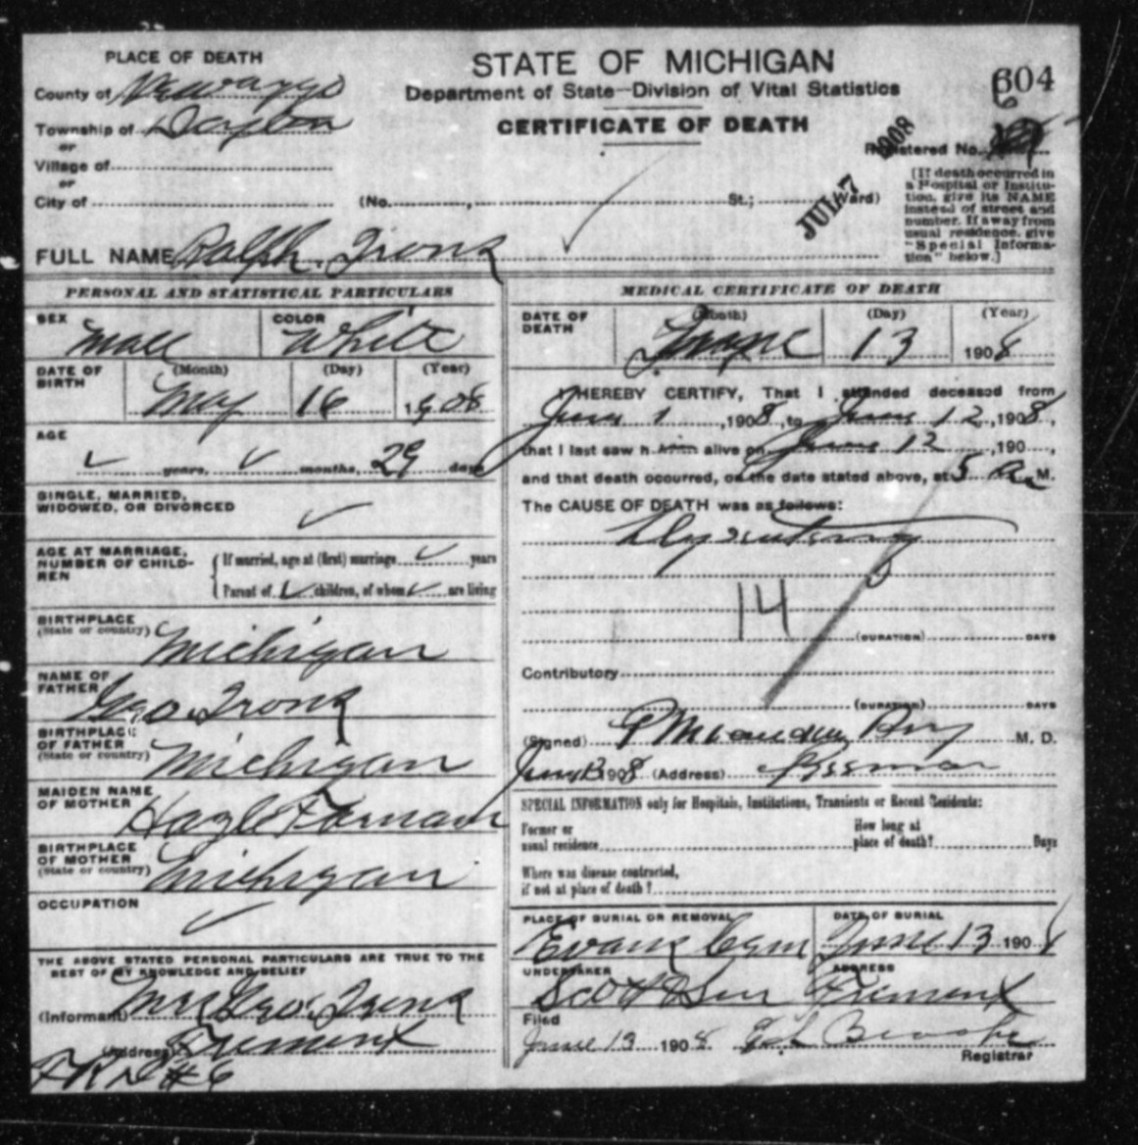 PLACE OF DEATH
County of Newaygo
Township of Dayton
or
Village of
or
City of
STATE OF MICHIGAN
Department of State—Division of Vital Statistics
CERTIFICATE OF DEATH
604
6
Registered No.
JUL 7 1908
(No. , St.; Ward)
(If death occurred in
a Hospital or Institu-
tion, give its NAME
instead of street and
number. If away from
usual residence, give
"Special Informa-
tion" below.)
FULL NAME Ralph
PERSONAL AND STATISTICAL PARTICULARS
SEX Male COLOR White
DATE OF BIRTH (Month) May (Day) 16 (Year) 1908
AGE
years, months, 29 days
SINGLE, MARRIED,
WIDOWED, OR DIVORCED
AGE AT MARRIAGE,
NUMBER OF CHILD-
REN
If married, age at (first) marriage years
Parent of children, of whom are living
BIRTHPLACE
(State or country) Michigan
NAME OF
FATHER Geo.
BIRTHPLACE
OF FATHER
(State or country) Michigan
MAIDEN NAME
OF MOTHER Hazle
BIRTHPLACE
OF MOTHER
(State or country) Michigan
OCCUPATION
THE ABOVE STATED PERSONAL PARTICULARS ARE TRUE TO THE
BEST OF MY KNOWLEDGE AND BELIEF
(Informant) Mrs Geo.
(Address) Fremont
#6
MEDICAL CERTIFICATE OF DEATH
DATE OF DEATH (Month) June (Day) 13 (Year) 1908
I HEREBY CERTIFY, That I attended deceased from
June 1, 1908, to June 12, 1908,
that I last saw h im alive on June 12, 190 ,
and that death occurred, on the date stated above, at 5 a M.
The CAUSE OF DEATH was as follows:
Dysentery
14
(DURATION) DAYS
Contributory
(DURATION) DAYS
(Signed) M. D.
June 13 1908 (Address)
SPECIAL INFORMATION only for Hospitals, Institutions, Transients or Recent Residents:
Former or
usual residence
How long at
place of death? Days
Where was disease contracted,
if not at place of death?
PLACE OF BURIAL OR REMOVAL
Evans Cem
DATE OF BURIAL
June 13 1908
UNDERTAKER
Scott & Son
ADDRESS
Fremont
Filed
June 13 1908
Registrar